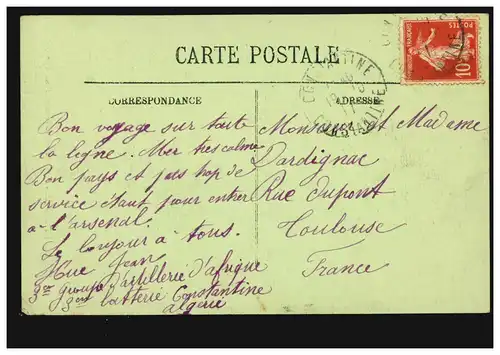 CARTE POSTALE
CONSTANTINE
CONSTANTINE
10
CORRESPONDANCE
ADRESSE
Bon voyage sur toute
la ligne. Mer tres calme
Bon pays et pas trop de
service étant pour entrer
a l'arsenal.
Le bonjour a tous.
Jean
3me groupe d'artillerie d'afrique
3me batterie Constantine
algerie
Monsieur et Madame
Dardignac
Rue Dupont
Toulouse
France